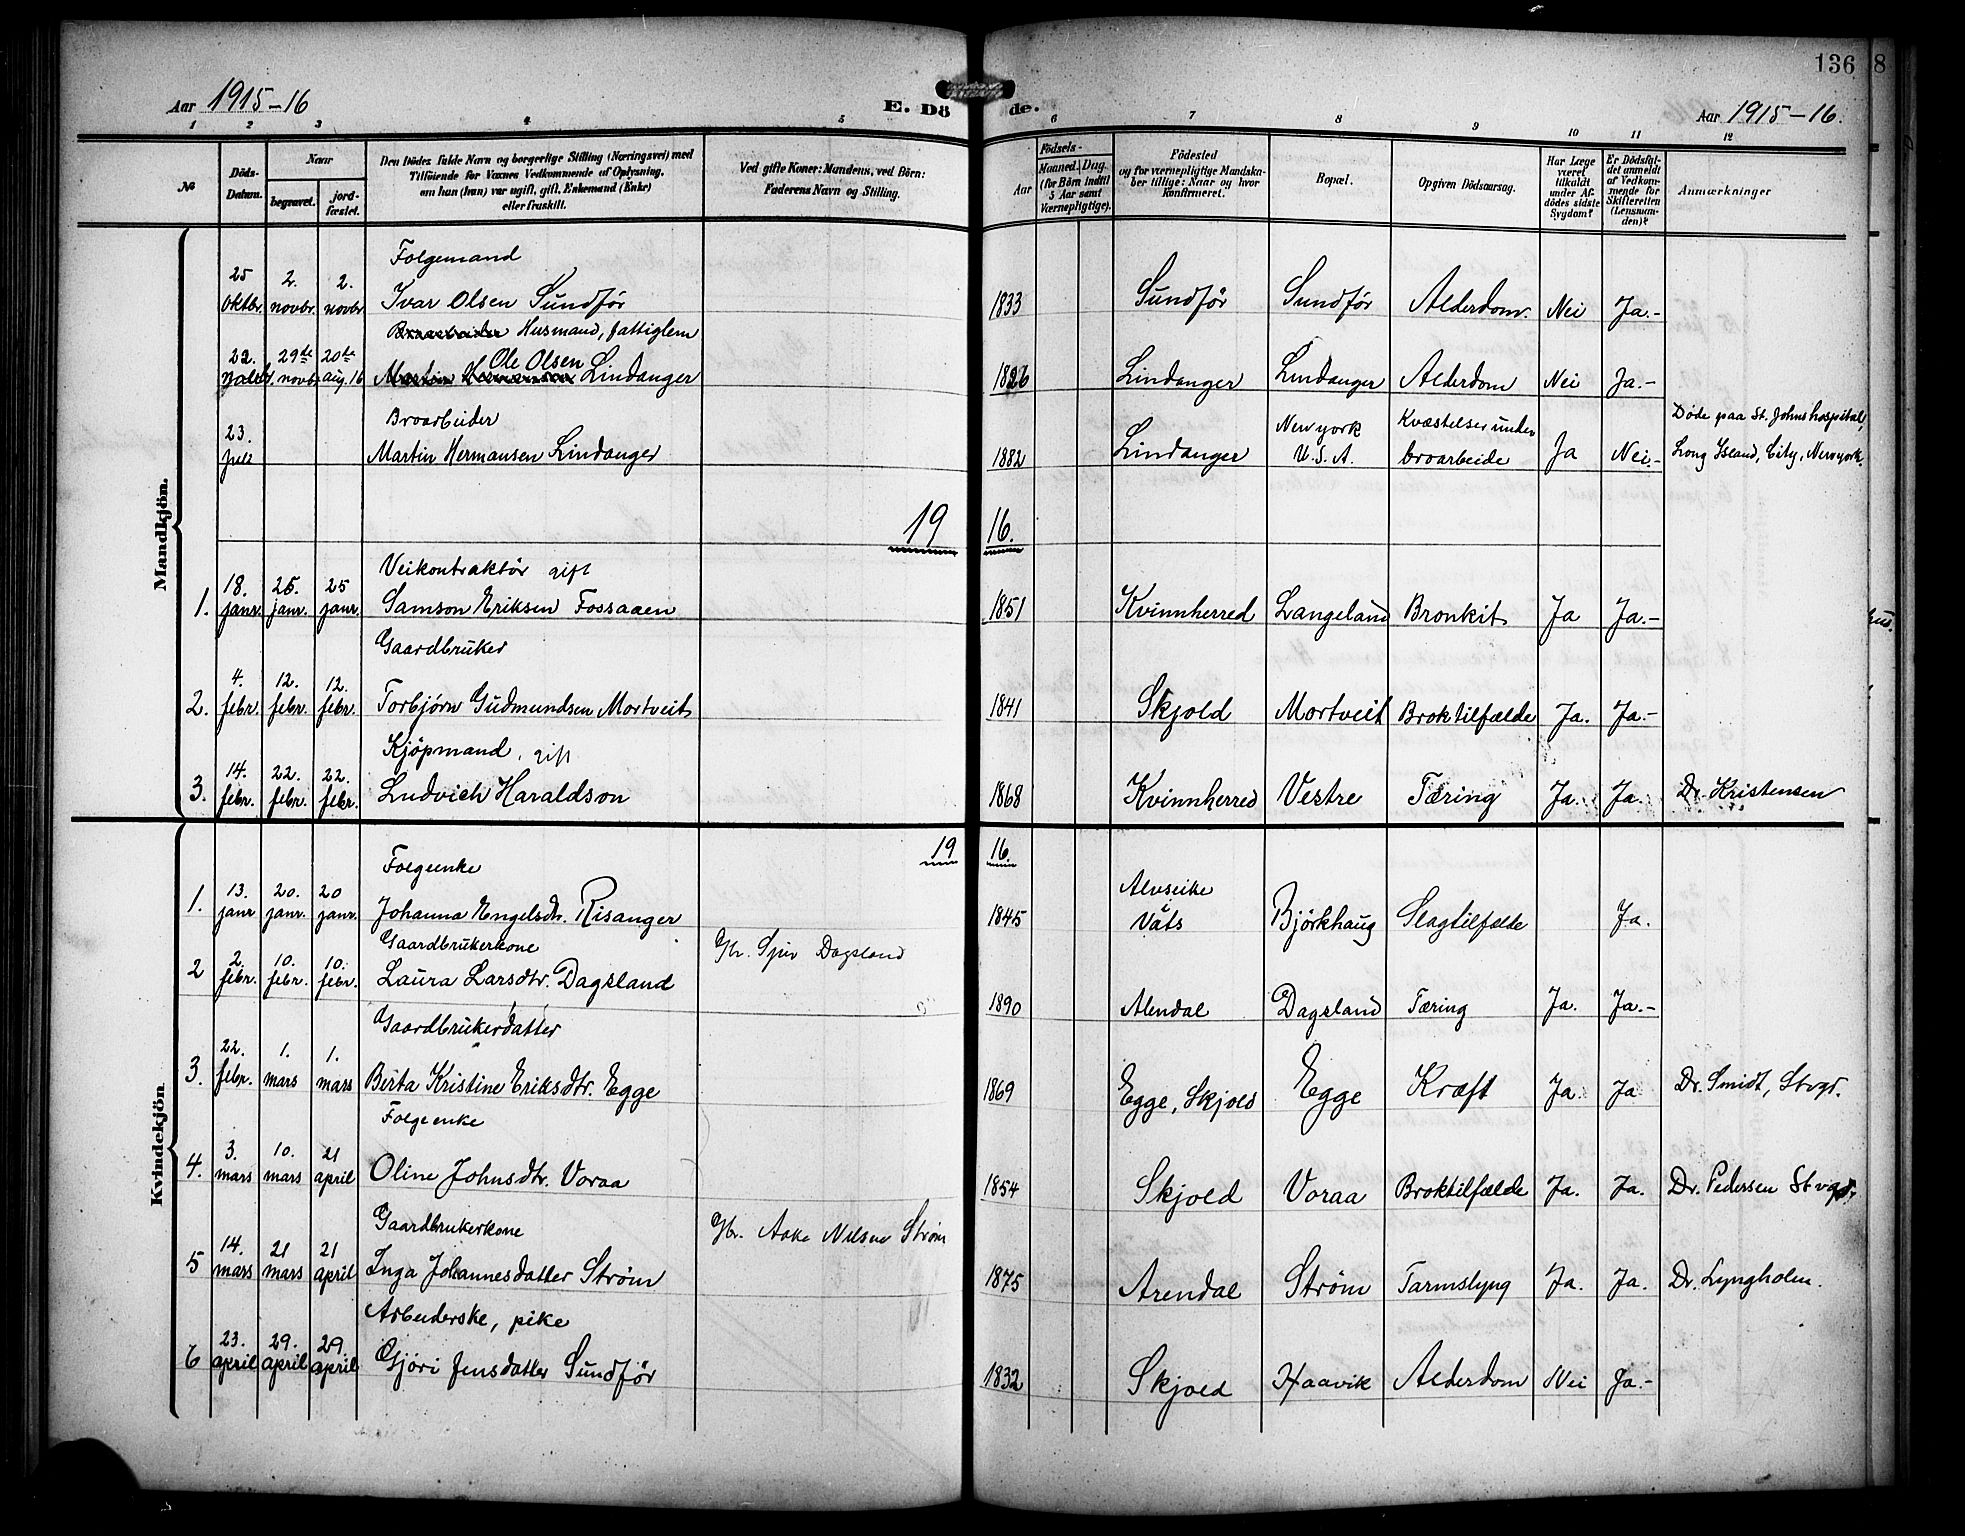 136 8
Aar 1915-16
E. Dö de.
Aar 1915-16.
1 2 3 4 5 6 7 8 9 10 11 12
No
Döds-Datum.
Naar
begravet.
jord-fæstet.
Den Dödes fulde Navn og borgerlige Stilling (Næringsvei) med
Tilföiende for Voxnes Vedkommende af Oplysning,
om han (hun) var ugift, gift, Enkemand (Enke)
eller fraskilt.
Ved gifte Koner: Mandens, ved Börn:
Faderens Navn og Stilling.
Födsels-
Aar
Maaned. Dag.
(for Börn indtil
5 Aar samt
Værnepligtige).
Födested
og for værnepligtige Mandska-
ber tillige: Naar og hvor
konfirmeret.
Bopæl.
Opgiven Dödsaarsag.
Har Læge
været
tilkaldt
under Af-
dödes sidste
Sygdom?
Er Dödsfal-
det anmeldt
af Vedkom-
mende for
Skifteretten
(Lensman-
den)?
Anmærkninger
Mandkjön.
Folgemand
25 oktbr. 2. novbr. 2. novbr. Ivar Olsen Sundför 1833 Sundför Sundför Alderdom. Nei Ja.-
Broarbeider Husmand, fattiglem
Ole Olsen
22. 29de novb. 20de aug. 16 Martin Hermansen Lindanger 1826 Lindanger Lindanger Alderdom Nei Ja.-
Broarbeider
23. juli Martin Hermansen Lindanger 1882 Lindanger Newyork U.S.A. Kvæstelser under broarbeide Ja Nei.- Døde paa St. Johns hospital,
Long Island, City, Newyork.
19 16.
Veikontraktör gift
1. 18. janr. 25. janr. 25 janr. Samson Eriksen Fossaaen 1851 Kvinnherred Langeland Bronkit Ja Ja.-
Gaardbruker
2. 4. febr. 12. febr. 12. febr. Torbjörn Gudmundsen Mortveit 1841 Skjold Mortveit Broktilfælde Ja. Ja.-
Kjöpmand, gift
3. 14. febr. 22. febr. 22. febr. Ludvich Haraldson 1868 Kvinnherred Vestre Tæring Ja. Ja. Dr. Kristensen
Kvindekjön.
19 16.
Folgeenke
1. 13. janr 20. janr. 20 janr. Johanna Engelsdtr. Risanger 1845 Alvseike i Vats Björkhaug Slagtilfælde Ja.
Gaardbrukerkone
2 2. febr. 10. febr. 10. febr. Laura Larsdtr. Dagsland Gbr. Sjur Dagsland 1890 Dagsland Tæring Ja. Ja.-
Gaardbrukerdatter
3. 22. febr. 1. mars 1. mars Berta Kristine Eriksdtr. Egge 1869 Egge, Skjold Egge Kræft Ja. Ja Dr. Smidt, Stvgr.
Folgeenke
4. 3. mars 10. mars 21 april Oline Johnsdtr. Voraa 1854 Skjold Voraa Broktilfælde Ja. Ja. Dr. Pedersen Stvgr.
Gaardbrukerkone
5 14. mars 21 mars 21 april Inga Johannesdatter Ström Gbr. Aake Nilsen Ström 1875 Arendal Ström Tarmslyng Ja. Ja. Dr. Lyngholm.
Arbeiderske, pike
6 23. april 29. april 29. april Gjöri Jensdatter Sundför 1832 Skjold Haavik Alderdom Nei Ja.-